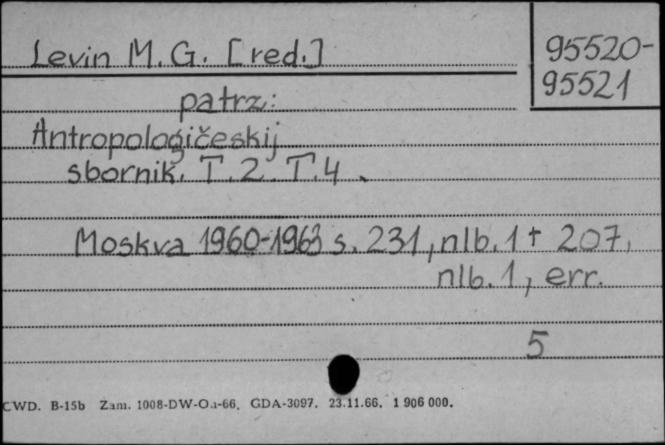 Levin M.G. [red.]
95520-
95521
patrz:
Antropologičeskij
sbornik. T.2. T.4.
Moskva 1960-1963 s. 231, nlb. 1 + 207,
nlb. 1, err.
5
CWD. B-15b Zam. 1008-DW-On-66. GDA-3097. 23.11.66. 1 906 000.